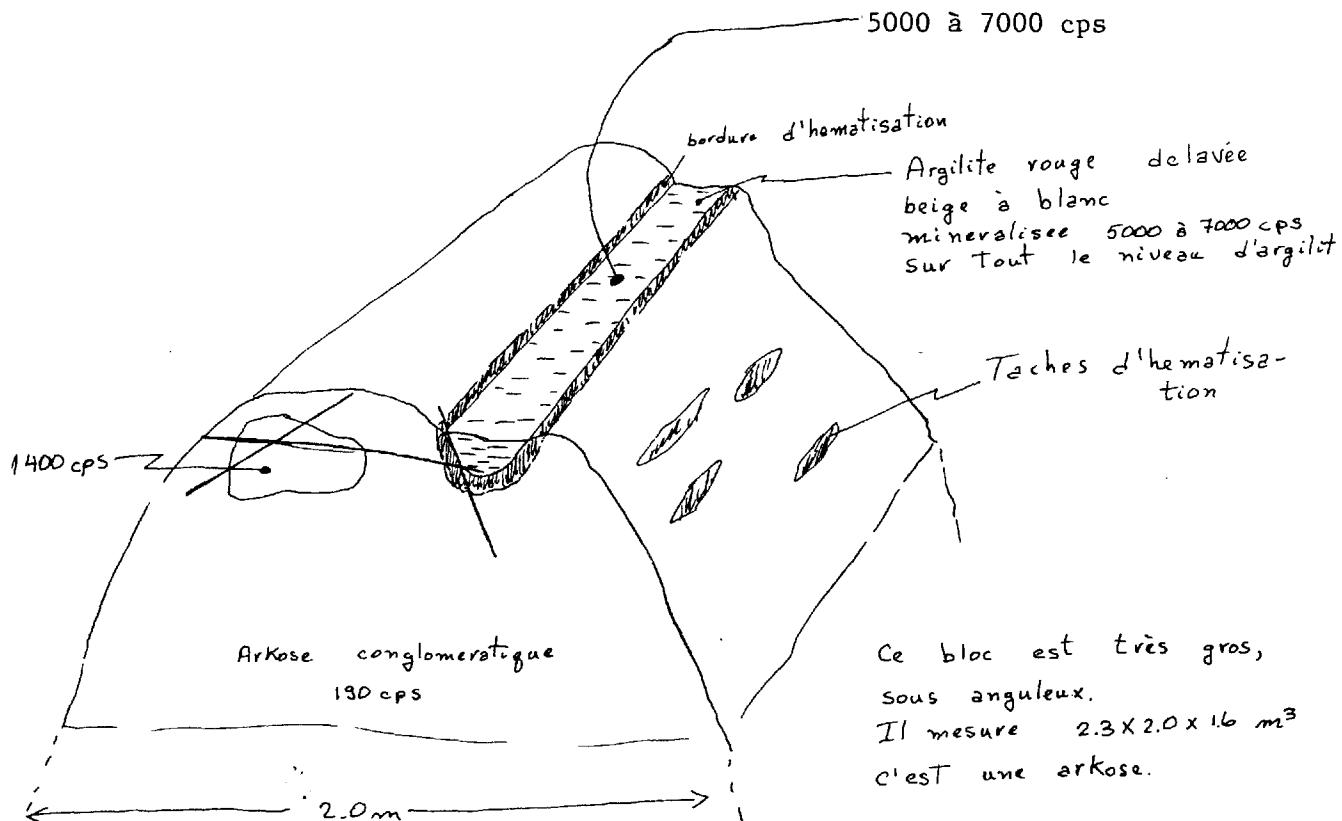 5000 à 7000 cps
bordure d'hematisation
Argilite rouge delavée
beige à blanc
mineralisee 5000 à 7000 cps
sur Tout le niveau d'argilit
Taches d'hematisa-
tion
1400 cps
Arkose conglomeratique
190 cps
Ce bloc est très gros,
sous anguleux.
Il mesure 2.3 X 2.0 x 1.6 m³
c'est une arkose.
2.0 m